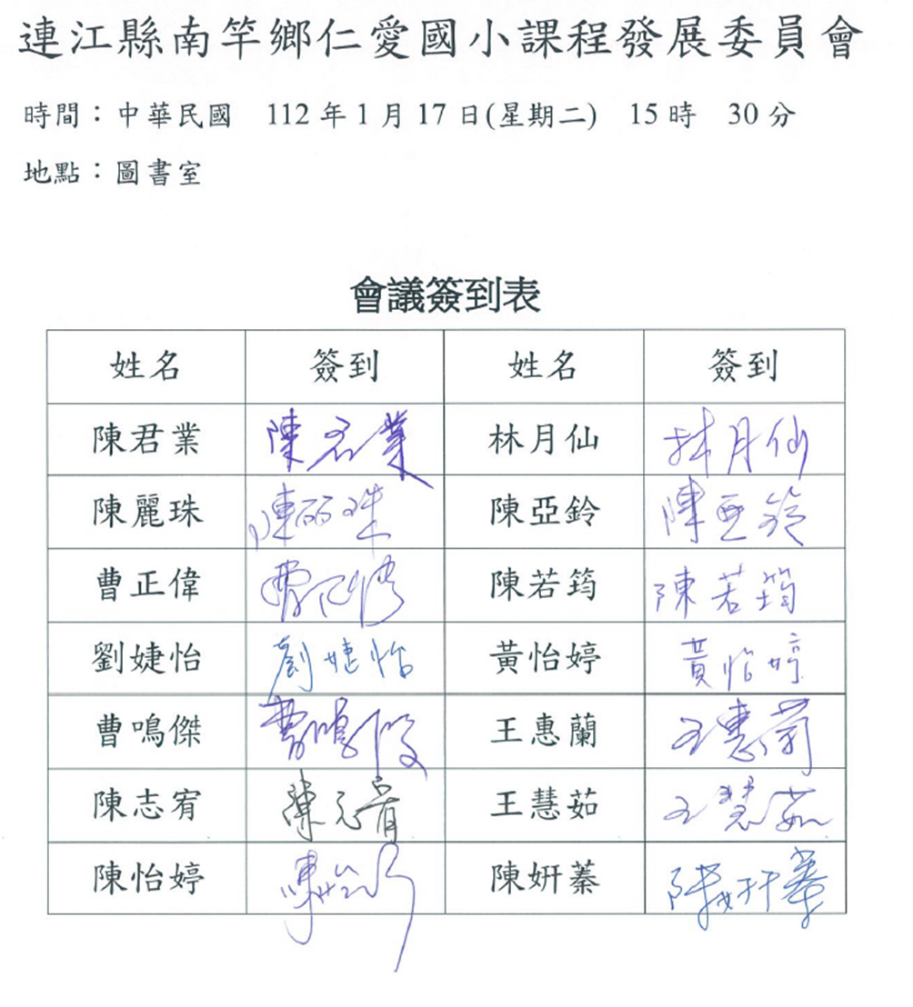 連江縣南竿鄉仁愛國小課程發展委員會
時間：中華民國 112 年 1 月 17 日(星期二) 15 時 30 分
地點：圖書室
會議簽到表
姓名 簽到 姓名 簽到
陳君業 陳君業 林月仙 林月仙
陳麗珠 陳麗珠 陳亞鈴 陳亞鈴
曹正偉 曹正偉 陳若筠 陳若筠
劉婕怡 劉婕怡 黃怡婷 黃怡婷
曹鳴傑 曹鳴傑 王惠蘭 王惠蘭
陳志宥 陳志宥 王慧茹 王慧茹
陳怡婷 陳怡婷 陳妍蓁 陳妍蓁